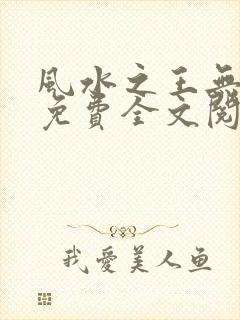 風水之王無
免費全文閱
我愛美人鱼